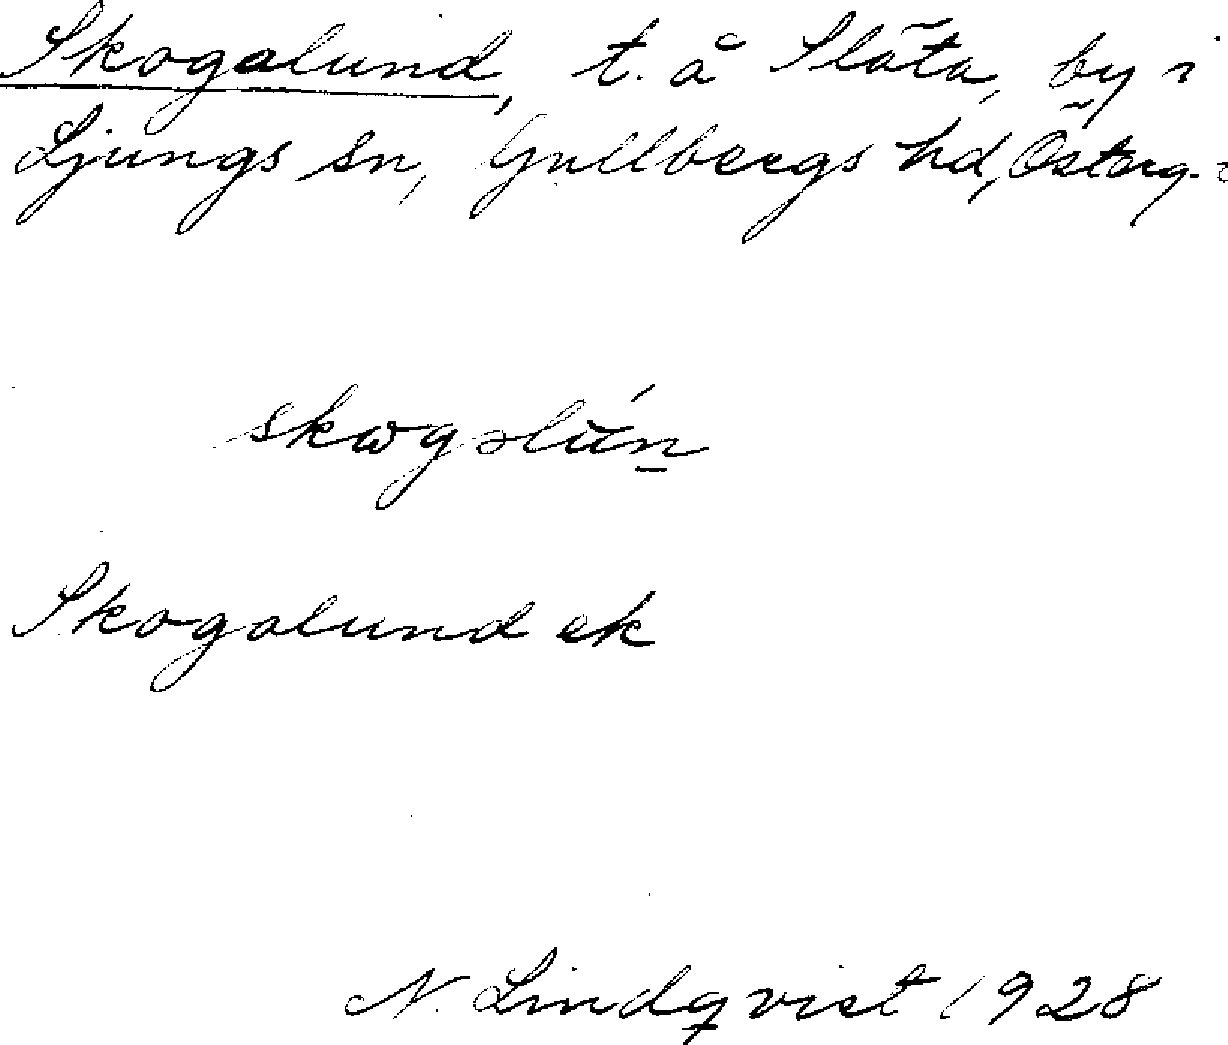 Skogalund, t. å Släta, by i
Ljungs sn, Gullbergs hd, Österg.
skωgəlún
Skogalund ek
N. Lindqvist 1928